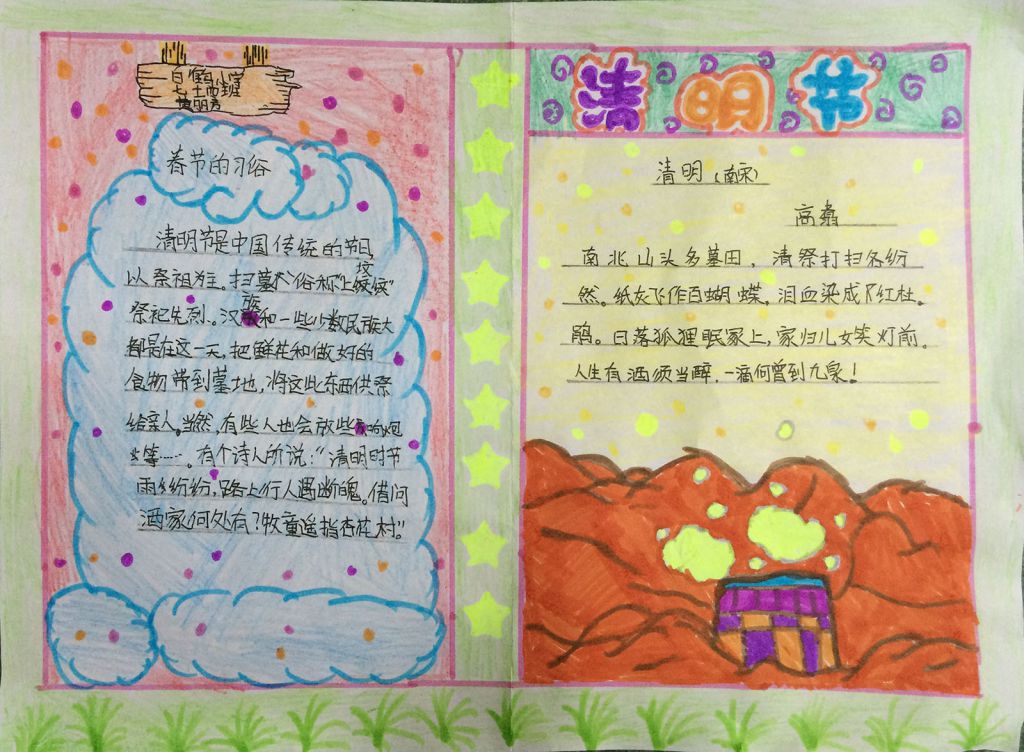 白鹤小学
七十四班
清明节
春节的习俗
清明节是中国传统的节日
以祭祖为主，扫墓 俗称"上坟"
祭祀先烈。汉族和一些少数民族大
都是在这一天，把鲜花和做好的
食物带到墓地，将这些东西供祭
给亲人。当然，有些人也会放些 炮
火等……。有个诗人所说："清明时节
雨纷纷，路上行人遇断魂。借问
酒家何处有？牧童遥指杏花村"
清明（南宋）
高翥
南北山头多墓田，清祭打扫各纷
然。纸灰飞作百蝴蝶，泪血染成红杜
鹃。日落狐狸眠冢上，家归儿女笑灯前。
人生有酒须当醉，一滴何曾到九泉！